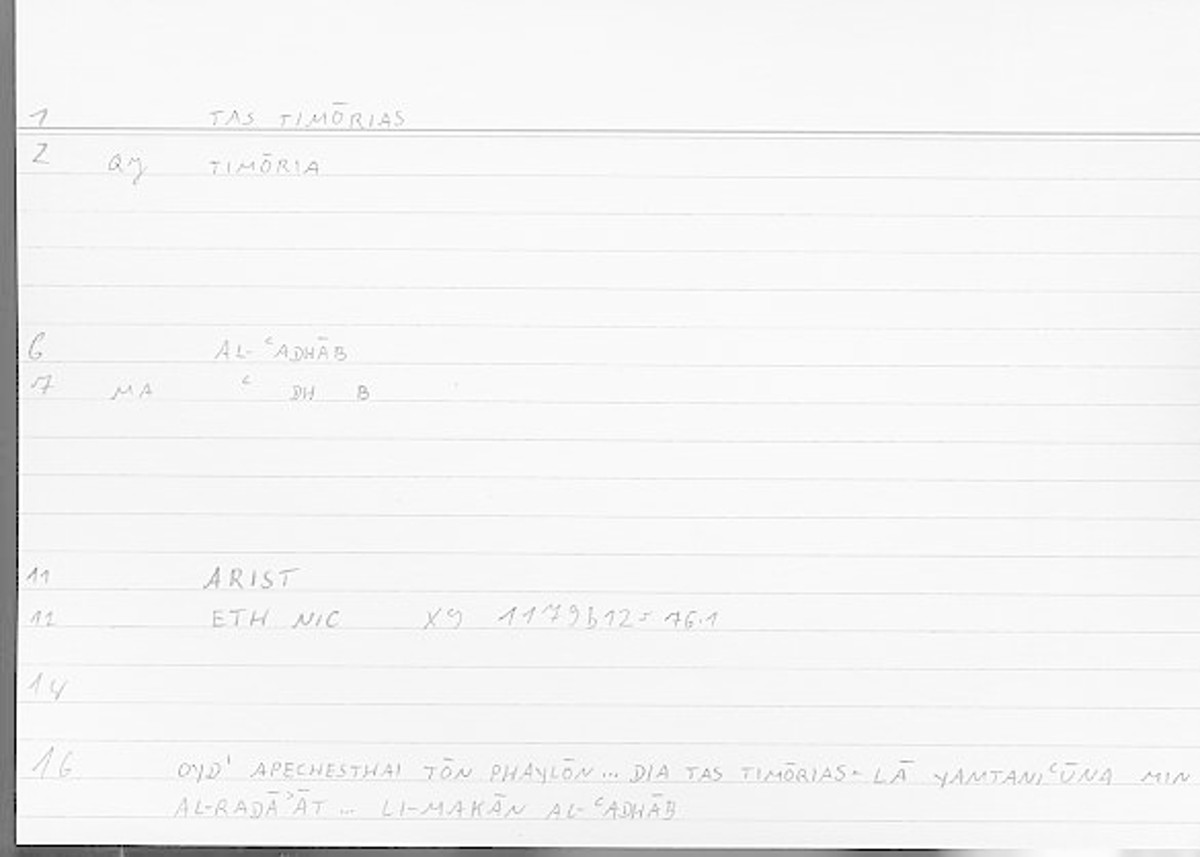 1 TAS TIMŌRIAS
2 QY TIMŌRIA
6 AL-ʿADHĀB
7 MA ʿ DH B
11 ARIST
12 ETH NIC X9 1179b12 = 76.1
14
16 OYD' APECHESTHAI TŌN PHAYLŌN... DIA TAS TIMŌRIAS - LĀ YAMTANIʿŪNA MIN
AL-RADĀʾĀT ... LI-MAKĀN AL-ʿADHĀB